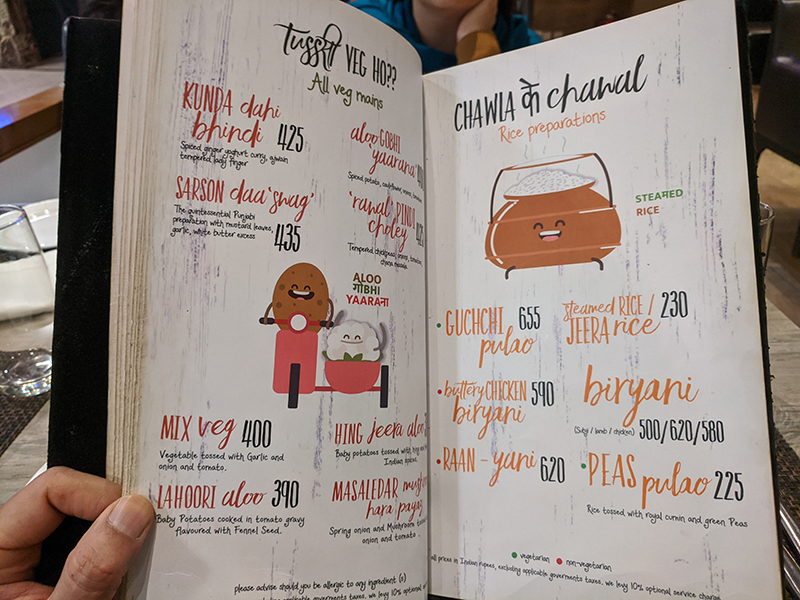 tussi VEG HO??
All veg mains
KUNDA dahi
bhindi 425
Spiced ginger yoghurt curry, ajwain
tempered lady finger
SARSON daa 'swag'
The quintessential Punjabi
preparation with mustard leaves,
garlic, white butter excess
435
aloo GOBHI
yaarana
Spiced potato, cauliflower, onions,
'rawal' PINDI
choley
Tempered chickpeas, onions, tomatoes,
chana masala.
ALOO
गोBHI
YAARAना
MIX veg 400
Vegetable tossed with Garlic and
onion and tomato.
LAHOORI aloo 390
Baby Potatoes cooked in tomato gravy
flavoured with Fennel Seed.
HING jeera aloo
Baby potatoes tossed with hing and
Indian spices.
MASALEDAR
hara payaz
Spring onion and Mushroom
onion and tomato
please advise should you be allergic to any ingredient (s)
applicable goverments taxes. we levy 10% optional
CHAWLA के chawal
Rice preparations
STEAMED
RICE
GUCHCHI
pulao 655
steamed RICE /
JEERA rice 230
buttery CHICKEN
biryani 590
biryani
(Subji / lamb / chicken) 500/620/580
RAAN - yani 620
PEAS pulao 225
Rice tossed with royal cumin and green Peas
vegetarian non-vegetarian
all prices in Indian rupees, excluding applicable goverments taxes. we levy 10% optional service charge